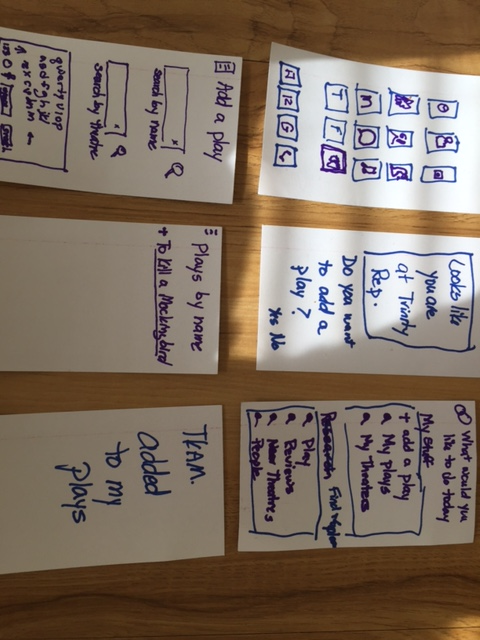 Looks like
you are
at Trinity
Rep.
Do you want
to add a
play?
Yes No
What would you
like to do today
My stuff
+ add a play
a My plays
a My Theatres
Research
a Play
a Reviews
a New Theatres
a People
Add a play
x
search by name
x
search by theatre
plays by name
+ To Kill a Mockingbird
TKAM.
added
to my
plays